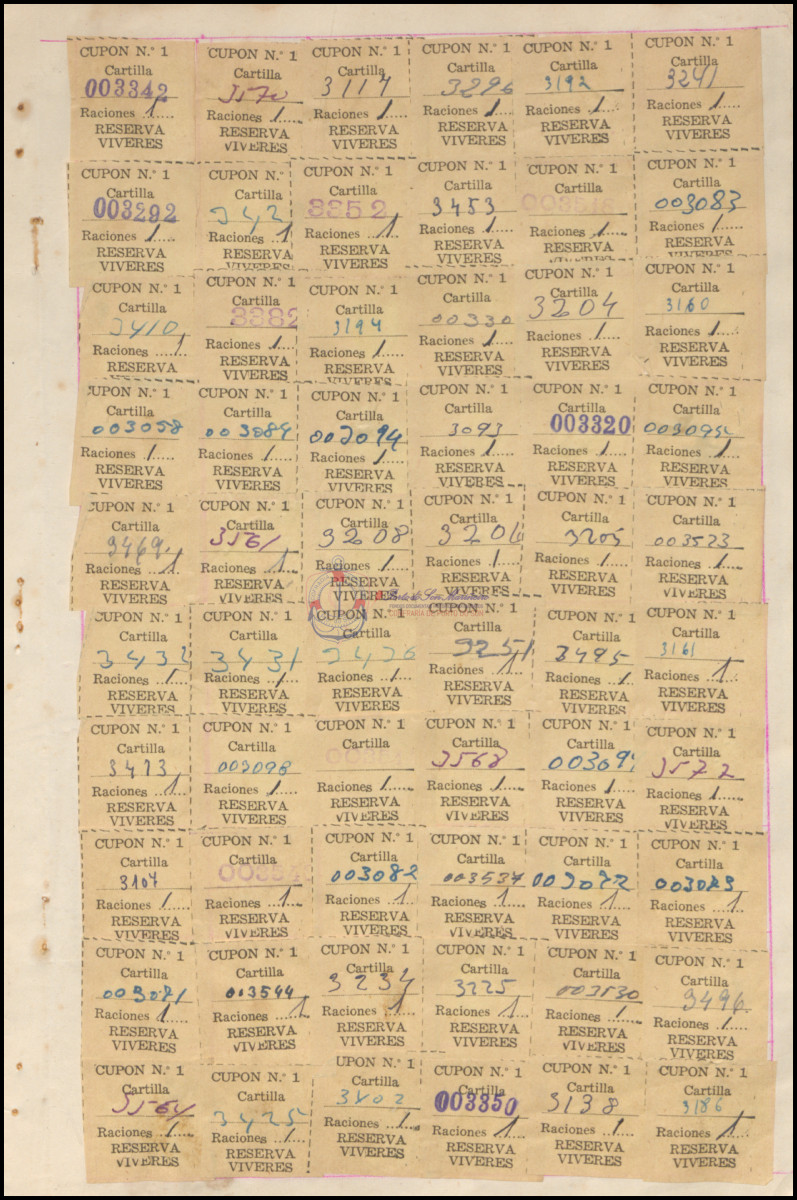 CUPON N.º 1 CUPON N.º 1 CUPON N.º 1 CUPON N.º 1 CUPON N.º 1 CUPON N.º 1
Cartilla Cartilla Cartilla Cartilla Cartilla Cartilla
003342 3570 3117 3296 3192 3241
Raciones 1 Raciones 1 Raciones 1 Raciones 1 Raciones 1 Raciones 1
RESERVA RESERVA RESERVA RESERVA RESERVA RESERVA
VIVERES VIVERES VIVERES VIVERES VIVERES VIVERES
CUPON N.º 1 CUPON N.º CUPON N.º 1 CUPON N.º 1 CUPON N.º 1 CUPON N.º 1
Cartilla Cartilla Cartilla Cartilla Cartilla Cartilla
003292 342 3352 3453 003083
Raciones 1 Raciones 1 Raciones 1 Raciones 1 Raciones 1 Raciones 1
RESERVA RESERVA RESERVA RESERVA RESERVA RESERVA
VIVERES VIVERES VIVERES VIVERES VIVERES VIVERES
CUPON N.º 1 CUPON N.º 1 CUPON N.º 1 CUPON N.º 1 CUPON N.º 1 CUPON N.º 1
Cartilla Cartilla Cartilla Cartilla Cartilla Cartilla
3410 3382 3194 00330 3204 3160
Raciones 1 Raciones 1 Raciones 1 Raciones 1 Raciones 1 Raciones 1
RESERVA RESERVA RESERVA RESERVA RESERVA RESERVA
VIVERES VIVERES VIVERES VIVERES VIVERES
CUPON N.º 1 CUPON N.º 1 CUPON N.º 1 CUPON N.º 1 CUPON N.º 1 CUPON N.º 1
Cartilla Cartilla Cartilla Cartilla Cartilla Cartilla
003058 003084 003094 3093 003320 003095
Raciones 1 Raciones 1 Raciones 1 Raciones 1 Raciones 1 Raciones 1
RESERVA RESERVA RESERVA RESERVA RESERVA RESERVA
VIVERES VIVERES VIVERES VIVERES VIVERES VIVERES
CUPON N.º 1 CUPON N.º 1 CUPON N.º 1 CUPON N.º 1 CUPON N.º 1 CUPON N.º 1
Cartilla Cartilla Cartilla Cartilla Cartilla Cartilla
3469 3561 3208 3206 3205 003523
Raciones 1 Raciones 1 Raciones 1 Raciones 1 Raciones 1 Raciones 1
RESERVA RESERVA RESERVA RESERVA RESERVA RESERVA
VIVERES VIVERES VIVERES VIVERES VIVERES VIVERES
CUPON N.º 1 CUPON N.º 1 CUPON N.º 1 CUPON N.º 1 CUPON N.º 1 CUPON N.º 1
Cartilla Cartilla Cartilla Cartilla Cartilla Cartilla
3432 3431 3436 3251 3495 3161
Raciones 1 Raciones 1 Raciones 1 Raciones 1 Raciones 1 Raciones 1
RESERVA RESERVA RESERVA RESERVA RESERVA RESERVA
VIVERES VIVERES VIVERES VIVERES VIVERES VIVERES
CUPON N.º 1 CUPON N.º 1 CUPON N.º 1 CUPON N.º 1 CUPON N.º 1 CUPON N.º 1
Cartilla Cartilla Cartilla Cartilla Cartilla Cartilla
3473 003098 3568 003097 3572
Raciones 1 Raciones 1 Raciones 1 Raciones 1 Raciones 1 Raciones 1
RESERVA RESERVA RESERVA RESERVA RESERVA RESERVA
VIVERES VIVERES VIVERES VIVERES VIVERES VIVERES
CUPON N.º 1 CUPON N.º 1 CUPON N.º 1 CUPON N.º 1 CUPON N.º 1 CUPON N.º 1
Cartilla Cartilla Cartilla Cartilla Cartilla Cartilla
3107 003082 003537 003072 003073
Raciones 1 Raciones 1 Raciones 1 Raciones 1 Raciones 1 Raciones 1
RESERVA RESERVA RESERVA RESERVA RESERVA RESERVA
VIVERES VIVERES VIVERES VIVERES VIVERES VIVERES
CUPON N.º 1 CUPON N.º 1 CUPON N.º 1 CUPON N.º 1 CUPON N.º 1 CUPON N.º 1
Cartilla Cartilla Cartilla Cartilla Cartilla Cartilla
003071 003544 3234 3225 003530 3496
Raciones 1 Raciones 1 Raciones 1 Raciones 1 Raciones 1 Raciones 1
RESERVA RESERVA RESERVA RESERVA RESERVA RESERVA
VIVERES VIVERES VIVERES VIVERES VIVERES VIVERES
CUPON N.º 1 CUPON N.º 1 UPON N.º 1 CUPON N.º 1 CUPON N.º 1 CUPON N.º 1
Cartilla Cartilla Cartilla Cartilla Cartilla Cartilla
3564 3425 3402 003350 3138 3186
Raciones 1 Raciones 1 Raciones 1 Raciones 1 Raciones 1 Raciones 1
RESERVA RESERVA RESERVA RESERVA RESERVA RESERVA
VIVERES VIVERES VIVERES VIVERES VIVERES VIVERES